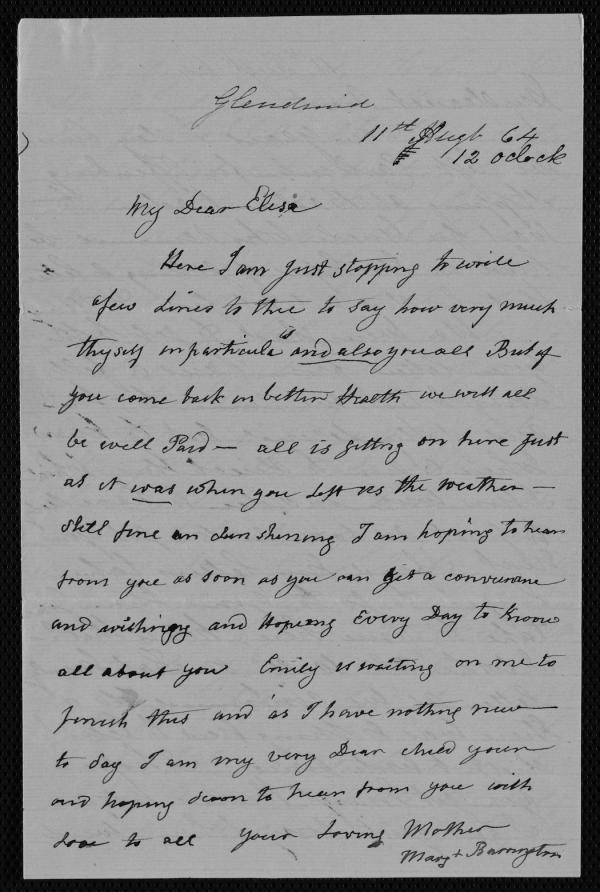 Glendruid
11st Augt 64
12 oclock
My Dear Elisa
Here I am just stopping to write
a few Lines to thee to say how very much
thyself in particular is and also you all But if
you come back in better Health we will all
be well Paid — all is getting on here just
as it was when you left us the weather —
still fine an Sun shining I am hoping to hear
from you as soon as you can get a
and wishing and Hopeing Every Day to Know
all about you Emily is waiting on me to
finish this and as I have nothing new
to day I am my very Dear child your
and hoping soon to hear from you with
Love to all your Loving Mother
Mary Barrington